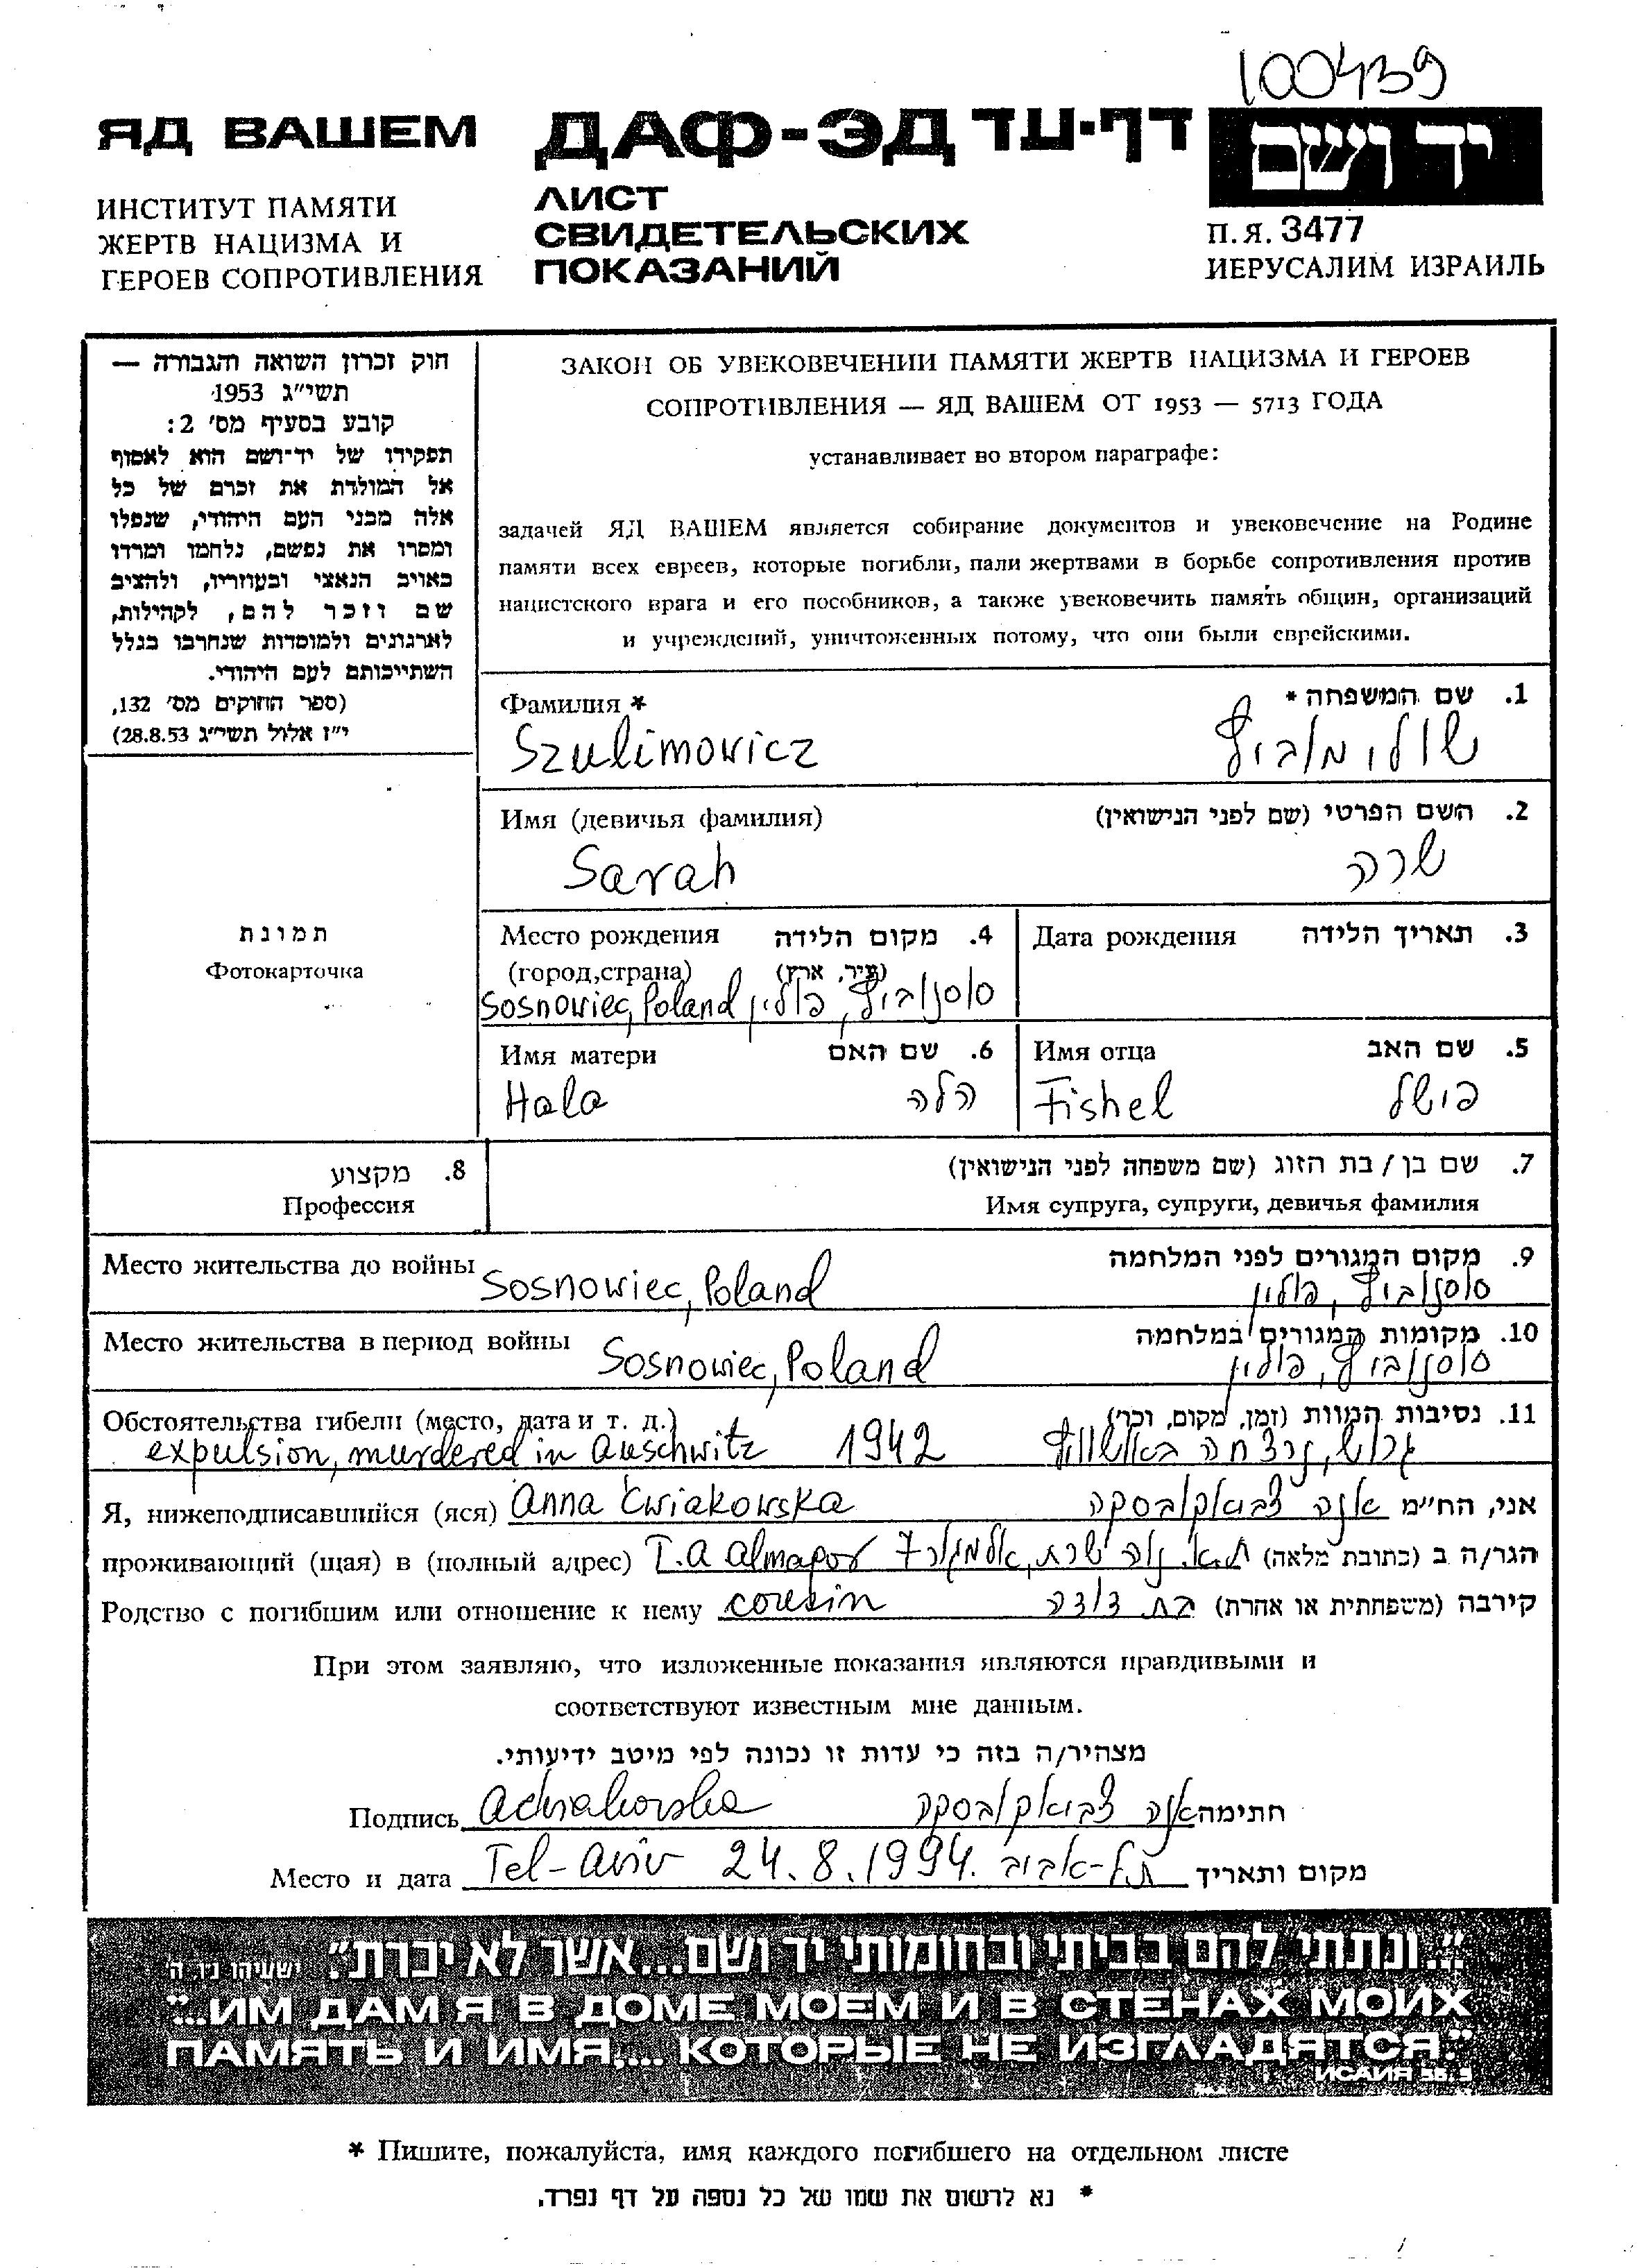 100439
ЯД ВАШЕМ
ИНСТИТУТ ПАМЯТИ
ЖЕРТВ НАЦИЗМА И
ГЕРОЕВ СОПРОТИВЛЕНИЯ
ДАФ-ЭД דף-עד
ЛИСТ
СВИДЕТЕЛЬСКИХ
ПОКАЗАНИЙ
יד ושם
П.Я. 3477
ИЕРУСАЛИМ ИЗРАИЛЬ
חוק זכרון השואה והגבורה —
תשי"ג 1953
קובע בסעיף מס' 2:
תפקידו של יד-ושם הוא לאסוף
אל המולדת את זכרם של כל
אלה מבני העם היהודי, שנפלו
ומסרו את נפשם, נלחמו ומרדו
באויב הנאצי ובעוזריו, ולהציב
שם וזכר להם, לקהילות,
לארגונים ולמוסדות שנחרבו בגלל
השתייכותם לעם היהודי.
(ספר החוקים מס' 132,
י"ז אלול תשי"ג 28.8.53)
ЗАКОН ОБ УВЕКОВЕЧЕНИИ ПАМЯТИ ЖЕРТВ НАЦИЗМА И ГЕРОЕВ
СОПРОТИВЛЕНИЯ — ЯД ВАШЕМ ОТ 1953 — 5713 ГОДА
устанавливает во втором параграфе:
задачей ЯД ВАШЕМ является собирание документов и увековечение на Родине
памяти всех евреев, которые погибли, пали жертвами в борьбе сопротивления против
нацистского врага и его пособников, а также увековечить память общин, организаций
и учреждений, уничтоженных потому, что они были еврейскими.
Фамилия * 1. שם המשפחה *
Szulimowicz שולימוביץ
Имя (девичья фамилия) 2. השם הפרטי (שם לפני הנישואין)
Sarah שרה
תמונת
Фотокарточка
Место рождения 4. מקום הלידה
(город,страна) (עיר, ארץ)
Sosnowiec, Poland סוסנוביץ, פולין
Дата рождения 3. תאריך הלידה
Имя матери 6. שם האם
Hala הלה
Имя отца 5. שם האב
Fishel פישל
8. מקצוע
Профессия
7. שם בן / בת הזוג (שם משפחה לפני הנישואין)
Имя супруга, супруги, девичья фамилия
Место жительства до войны 9. מקום המגורים לפני המלחמה
Sosnowiec, Poland סוסנוביץ, פולין
Место жительства в период войны 10. מקומות המגורים במלחמה
Sosnowiec, Poland סוסנוביץ, פולין
Обстоятельства гибели (место, дата и т. д.) 11. נסיבות המוות (זמן, מקום, וכר')
expulsion, murdered in Auschwitz 1942 גרוש, נרצחה באושוויץ
Я, нижеподписавшийся (яся) Anna Cwiakowska אני, הח"מ אנה צביאקובסקה
проживающий (щая) в (полный адрес) T.A הגר/ה ב (כתובת מלאה) ת.א. נוה שרת,
Родство с погибшим или отношение к нему cousin קירבה (משפחתית או אחרת) בת דודה
При этом заявляю, что изложенные показания являются правдивыми и
соответствуют известным мне данным.
מצהיר/ה בזה כי עדות זו נכונה לפי מיטב ידיעותי.
Подпись חתימה אנה צביאקובסקה
Место и дата Tel-Aviv 24.8.1994. תל-אביב מקום ותאריך
"...ונתתי להם בביתי ובחומותי יד ושם...אשר לא יכרת". ישעיהו נ"ו ה'
"...ИМ ДАМ Я В ДОМЕ МОЕМ И В СТЕНАХ МОИХ
ПАМЯТЬ И ИМЯ,... КОТОРЫЕ НЕ ИЗГЛАДЯТСЯ."
ИСАИЯ 56. 5
* Пишите, пожалуйста, имя каждого погибшего на отдельном листе
* נא לרשום את שמו של כל נספה על דף נפרד.